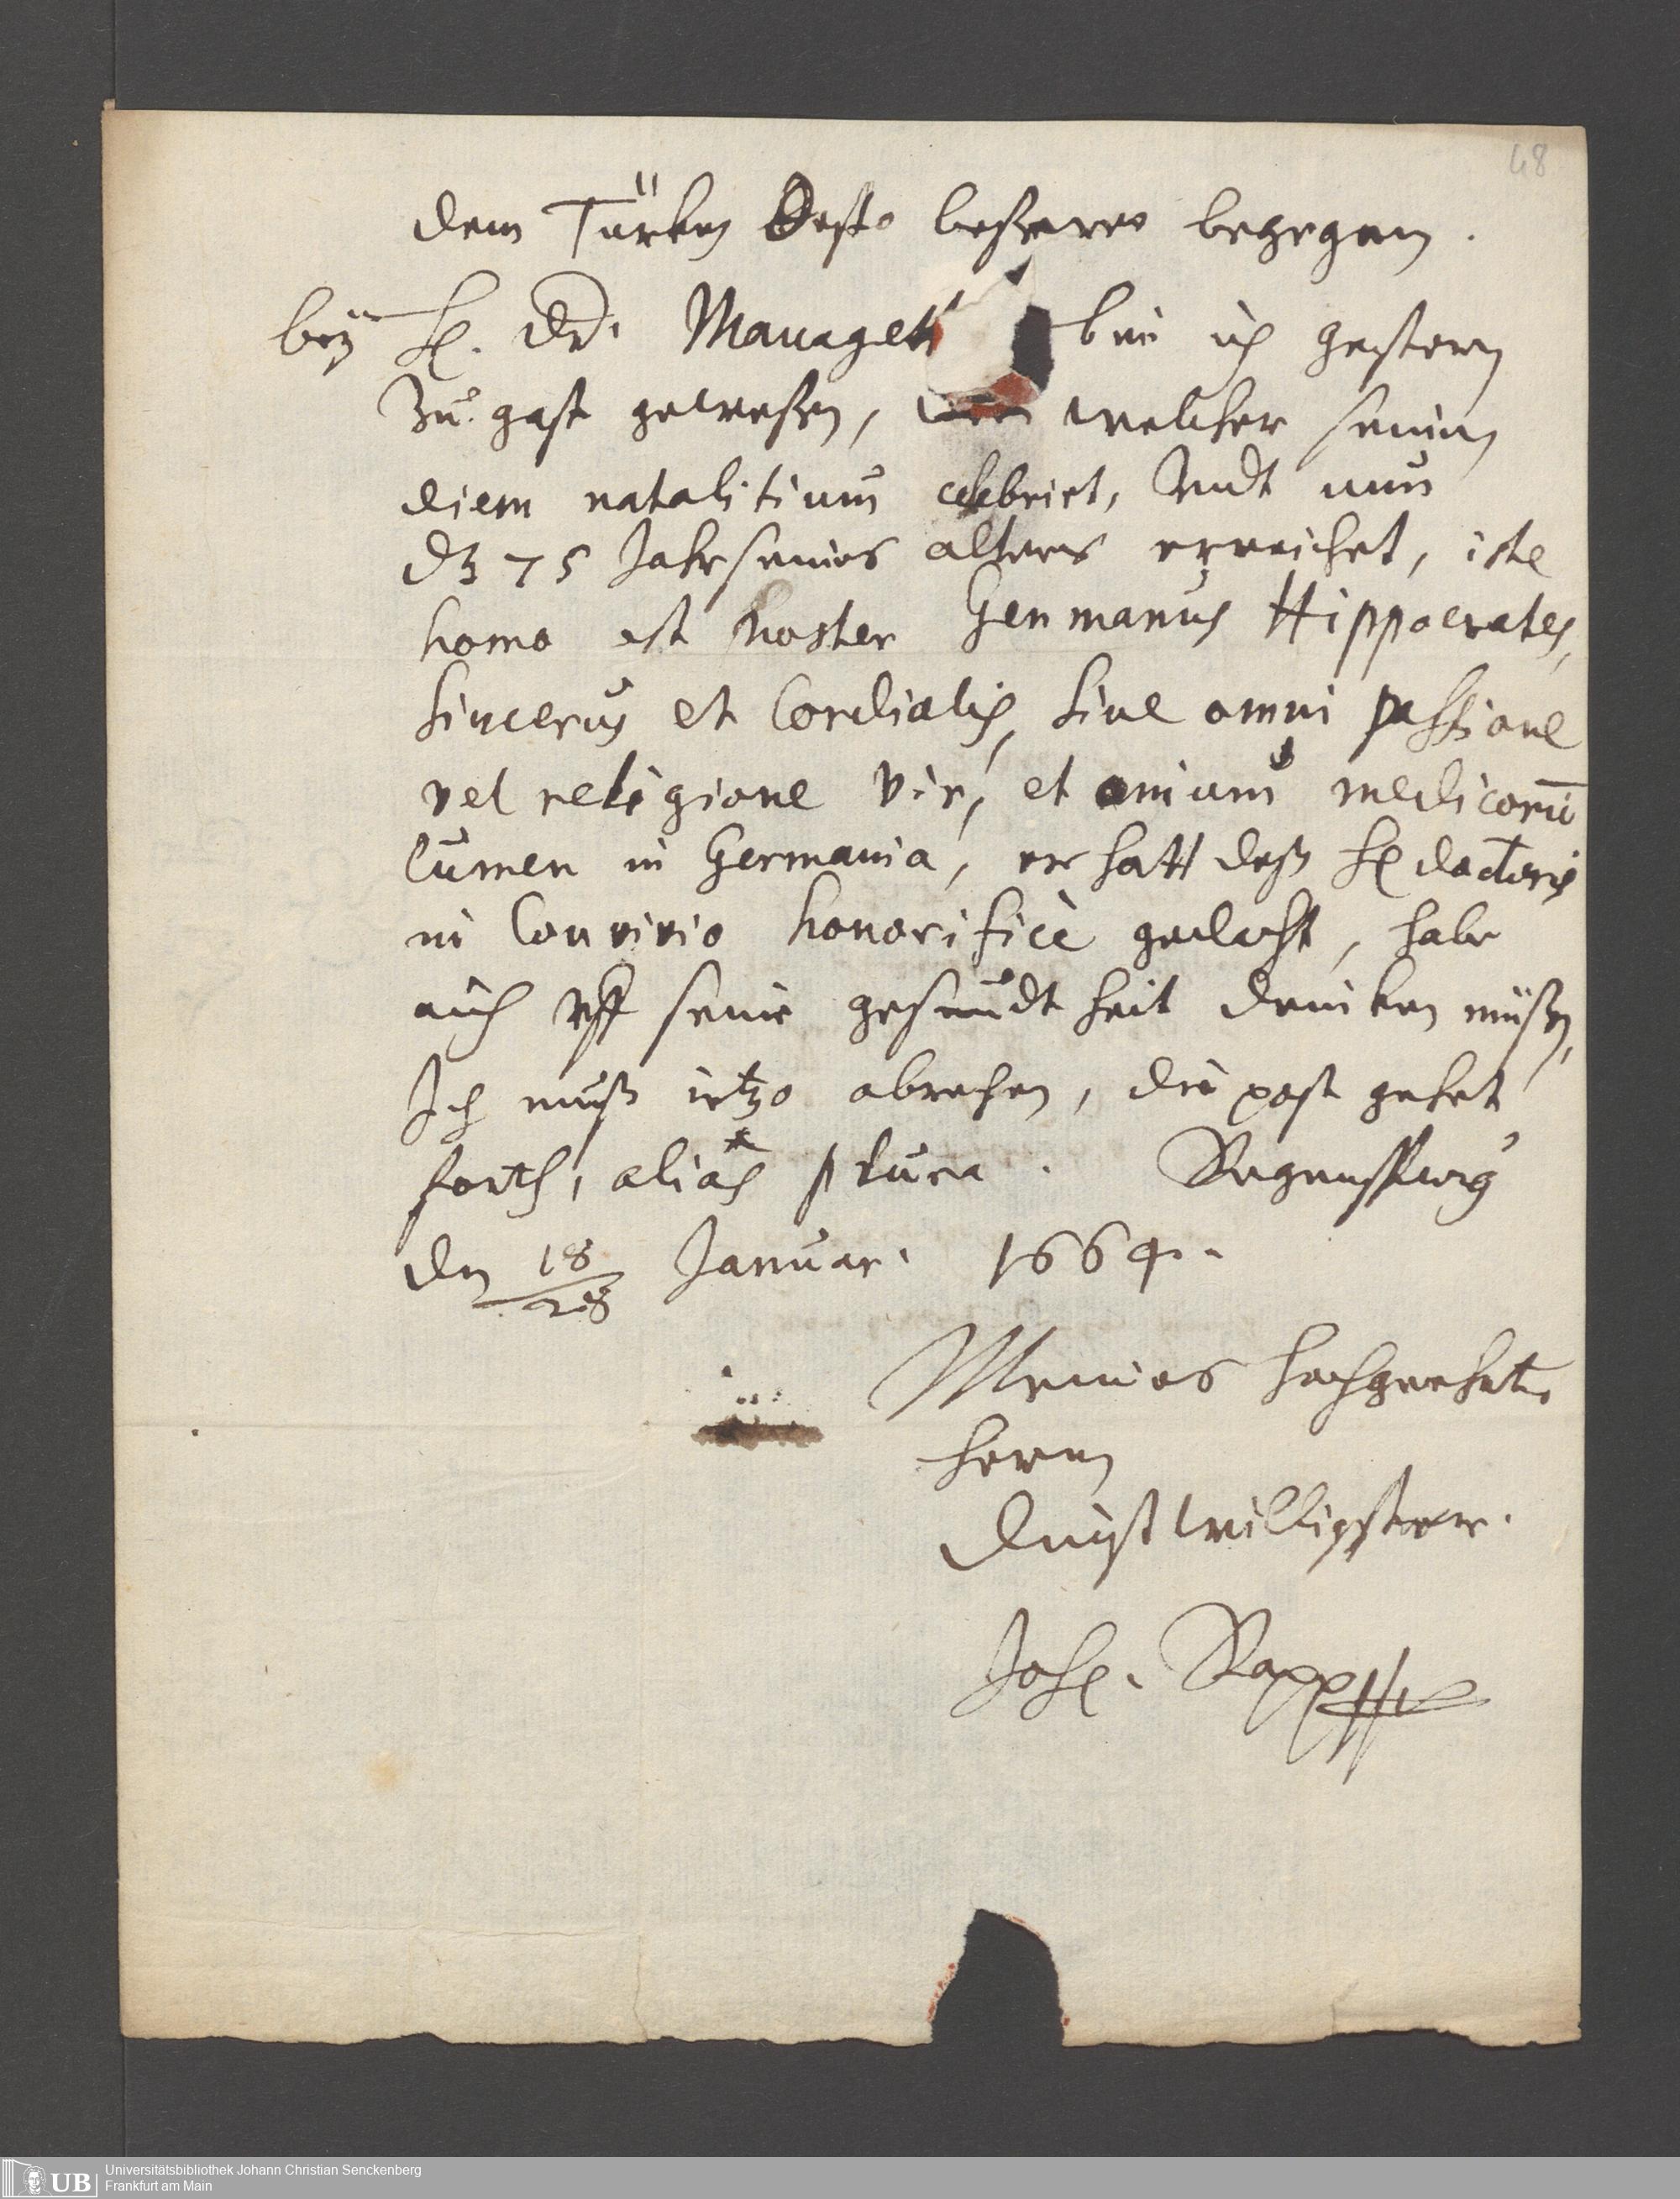 48
dem Türken desto beßeres begegnen.
beÿ H. Dr. Managet bin ich gestern
zu gast geweßen, welcher seinen
diem natalitium celebrirt, vndt nun
dz 75 Jahr seines alters erreichet, iste
homo est noster Germanus Hippocrates,
sincerus et Cordialis, sine omni passione
vel religione vir, et omium medicorū
lumen in Germania, er hatt deß H doctoris
in Convivio honorificè gedacht, habe
auch vff seine gesundtheit drinken müßen,
Ich muß ietzo abrechen, die post gehet
forth, aliàs plura. Regenspurg
den 18/28 Januar. 1664.
Meines hochgeehrten
herrn
dienstwilligster.
Joh. Rapp
Universitätsbibliothek Johann Christian Senckenberg
Frankfurt am Main
UB